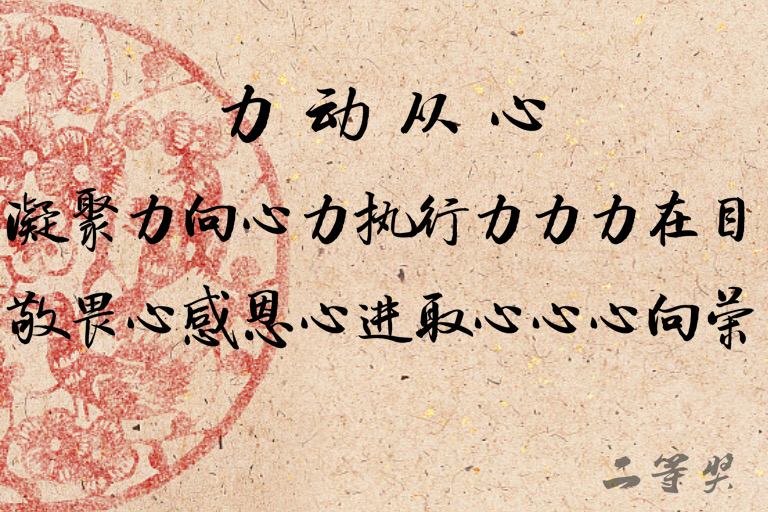 力动从心
凝聚力向心力执行力力力在目
敬畏心感恩心进取心心心向荣
二等奖